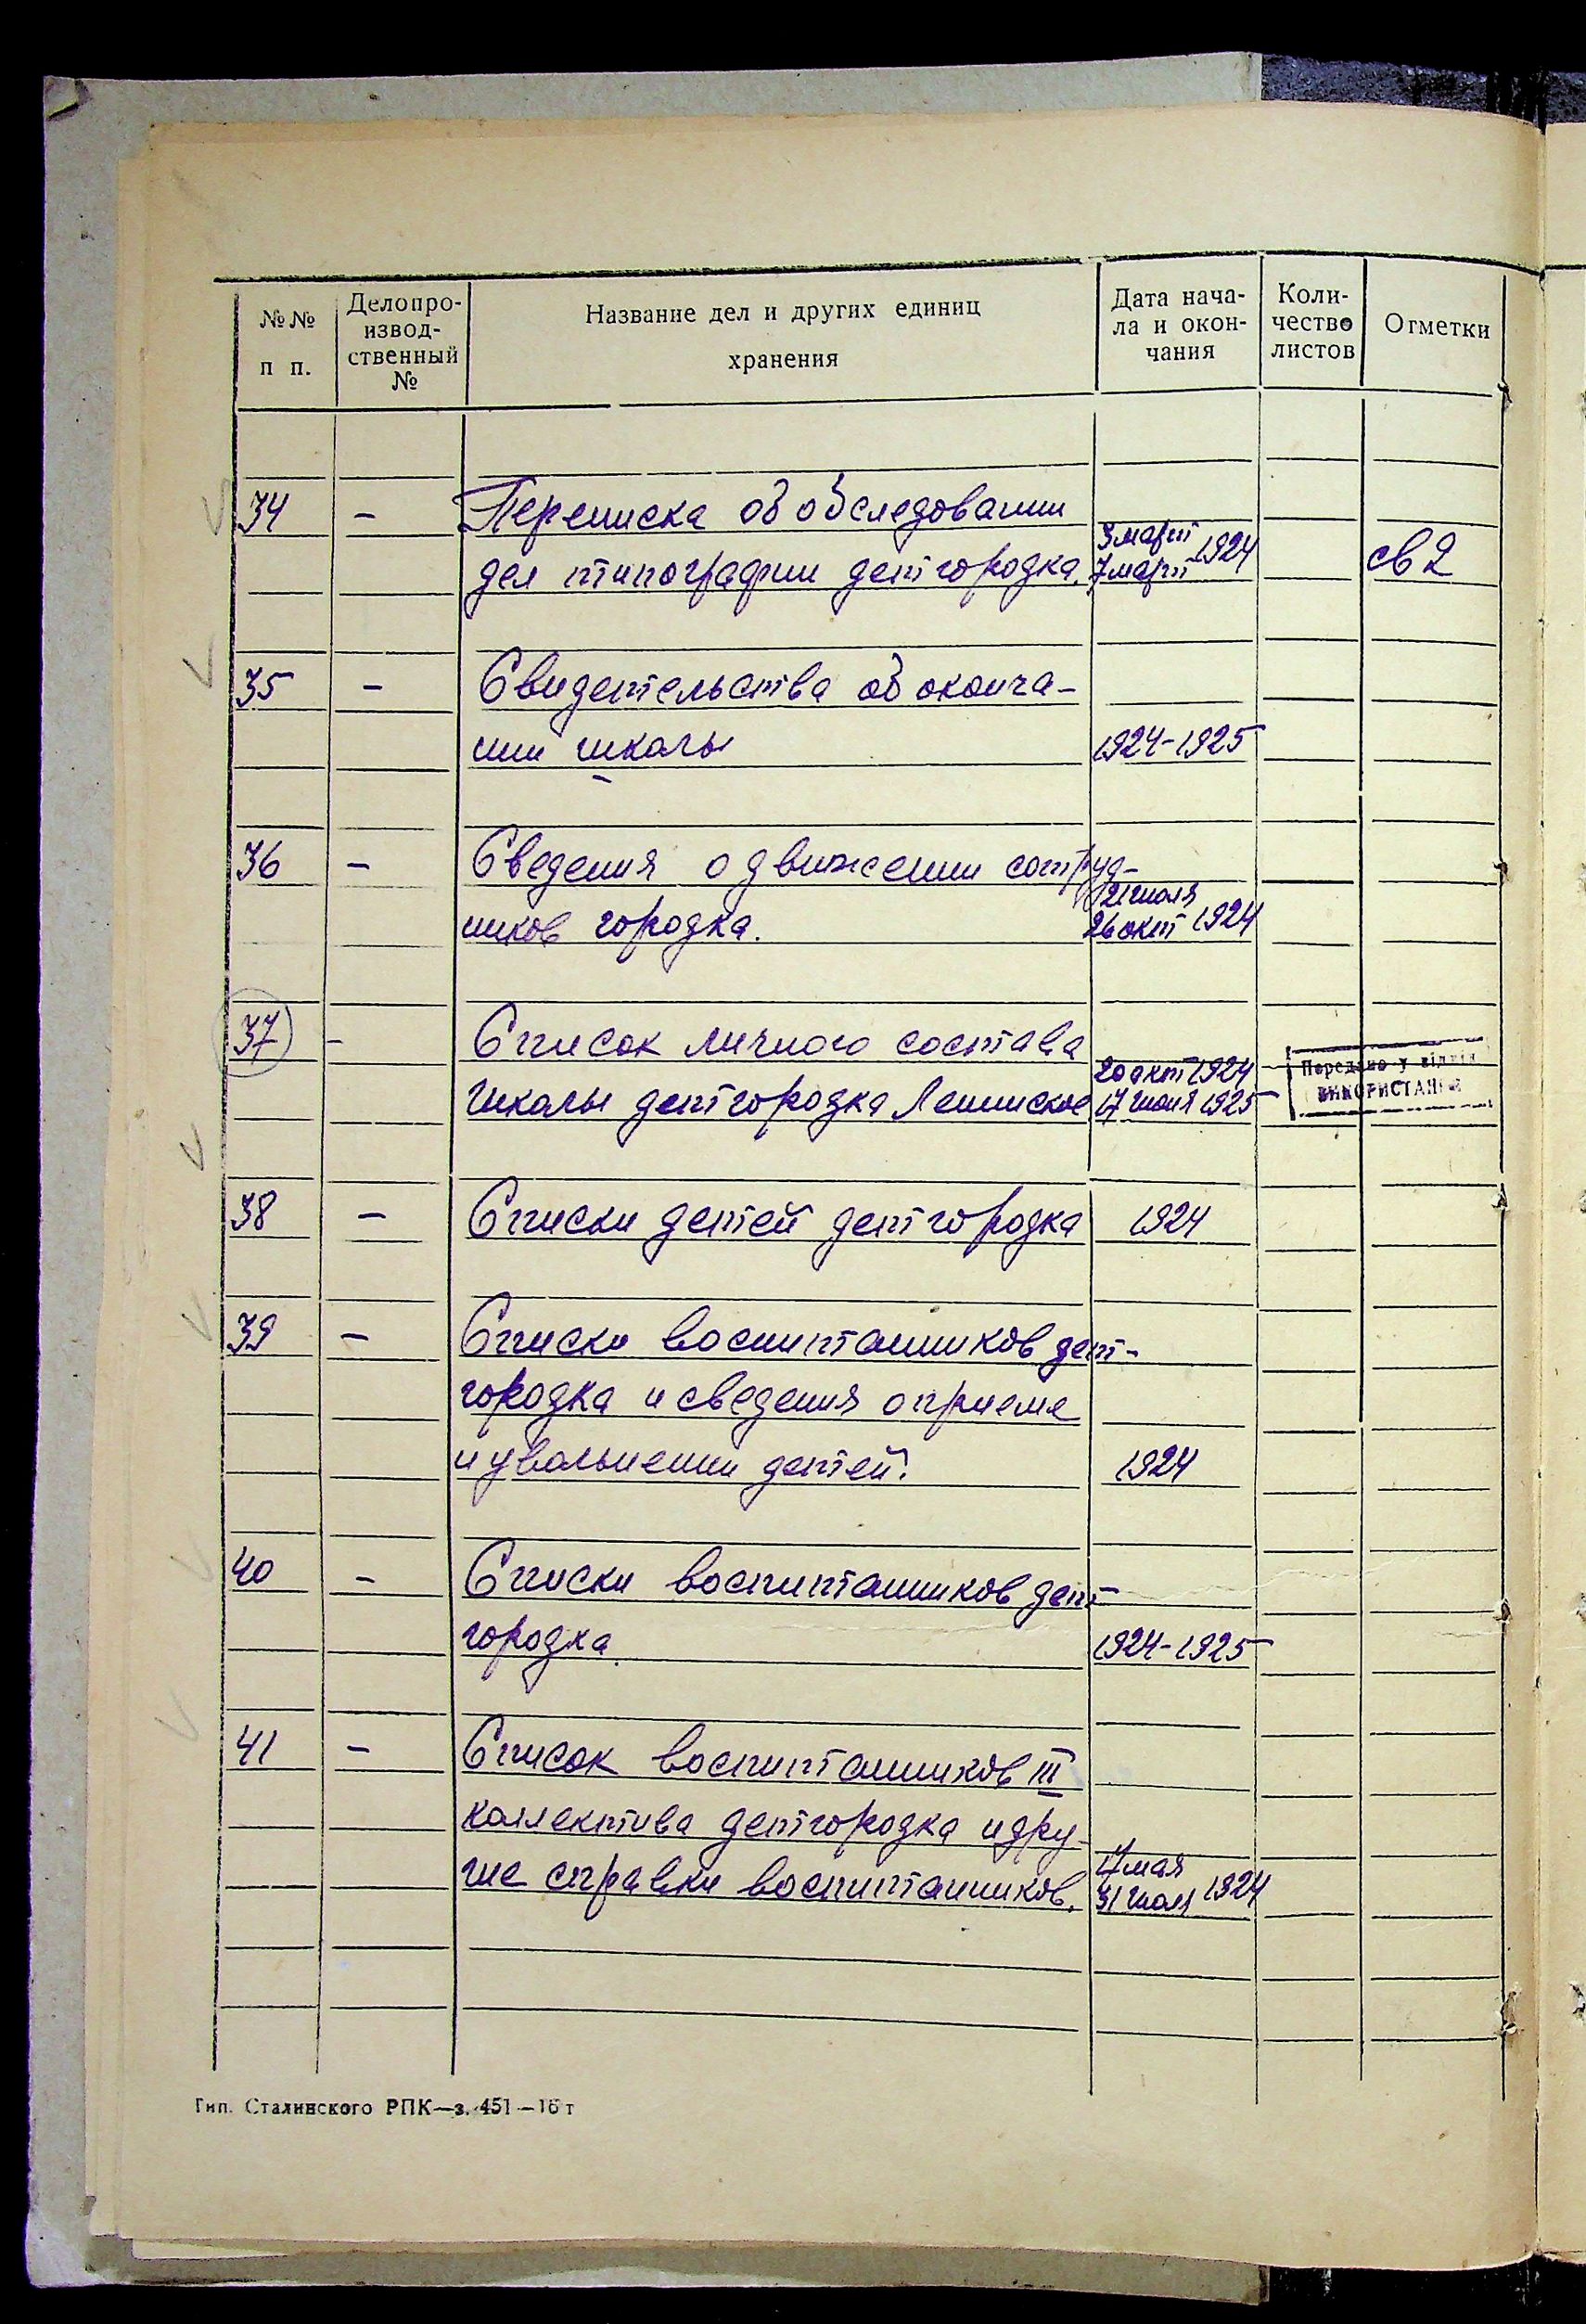 №№ п п.
Делопро-
извод-
ственный
№
Название дел и других единиц
хранения
Дата нача-
ла и окон-
чания
Коли-
чество
листов
Отметки
34 – Переписка об обследовании
дел типографии детгородка. 3 март 7 март 1924 св 2
35 – Свидетельства об оконча-
нии школы 1924-1925
36 – Сведения о движении сотруд-
ников городка. 12 июля 26 окт 1924
37 – Список личного состава
школы детгородка Ленинское 20 окт 1924 17 июня 1925
Передано у відділ
ВИКОРИСТАННЯ
38 – Списки детей детгородка 1924
39 – Списки воспитанников дет-
городка и сведения о приеме
и увольнении детей. 1924
40 – Списки воспитанников дет-
городка. 1924-1925
41 – Список воспитанников III
коллектива детгородка и дру-
гие справки воспитанников. 17 мая 31 июля 1924
Тип. Сталинского РПК—з. 451—16 т